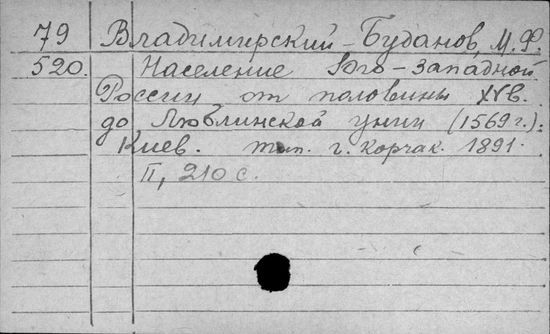 79 Владимирский-Буданов, М. Ф.
520. Население Юго-Западной
России от половины XV в.
до Люблинской унии (1569 г.).
Киев. тип. г. Корчак. 1891.
II, 210 с.